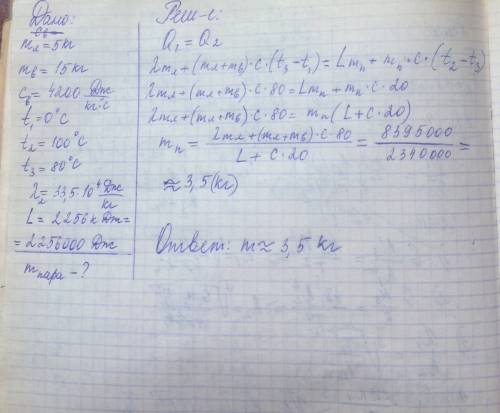 Дано:
mл=5кг
mв=15кг
cв=4200 Дж/кг·с
t₁=0°C
t₂=100°C
t₃=80°C
λл=33,5·10⁴ Дж/кг
L=2256к Дж=
=2256000 Дж
mпара-?
Реш-е:
Q₁=Q₂
λmл+(mл+mв)·c·(t₃-t₁)=Lmп+mп·c·(t₂-t₃)
λmл+(mл+mв)·c·80=Lmп+mп·c·20
λmл+(mл+mв)·c·80=mп(L+c·20)
mп=λmл+(mл+mв)·c·80/L+c·20=8395000/2340000=
≈3,5(кг)
Ответ: m≈3,5 кг